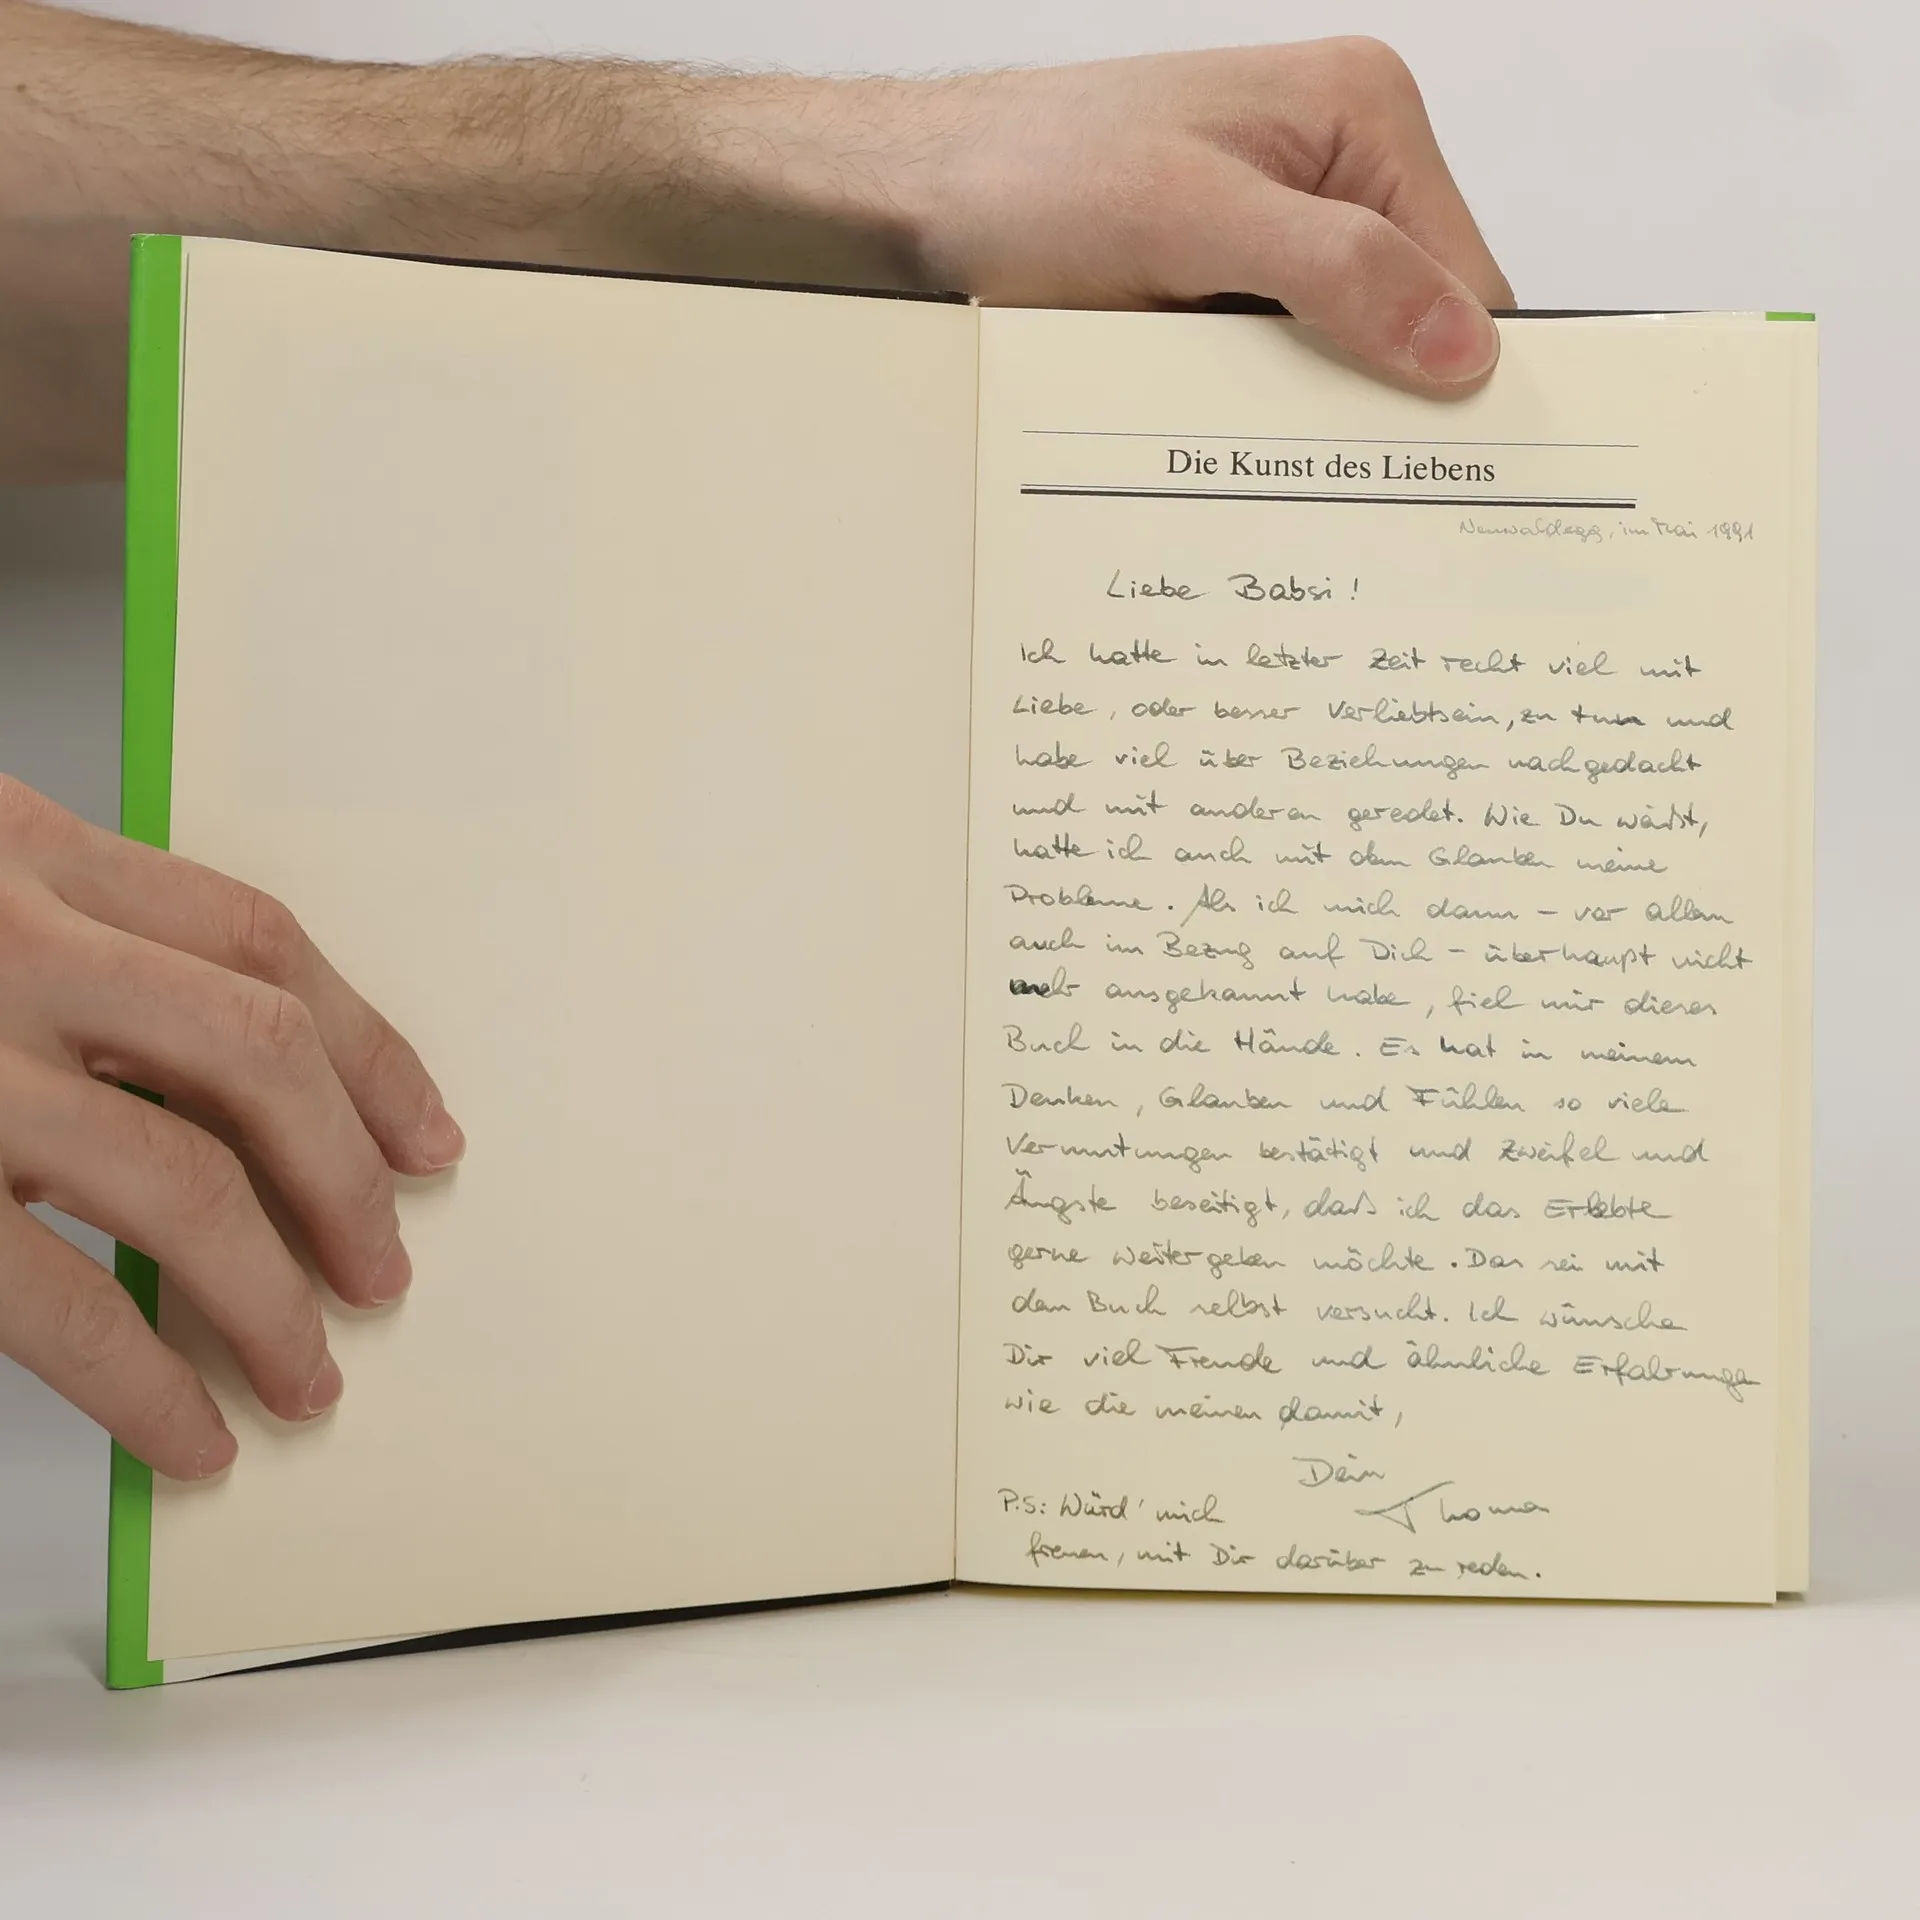 Die Kunst des Liebens
Neuwaldegg, im Mai 1991
Liebe Babsi!
Ich hatte in letzter Zeit recht viel mit
Liebe, oder besser Verliebtsein, zu tun und
habe viel über Beziehungen nachgedacht
und mit anderen geredet. Wie Du weißt,
hatte ich auch mit dem Glauben meine
Probleme. Als ich mich dann – vor allem
auch im Bezug auf Dich – überhaupt nicht
mehr ausgekannt habe, fiel mir dieses
Buch in die Hände. Es hat in meinem
Denken, Glauben und Fühlen so viele
Vermutungen bestätigt und Zweifel und
Ängste beseitigt, daß ich das Erlebte
gerne weitergeben möchte. Das sei mit
dem Buch selbst versucht. Ich wünsche
Dir viel Freude und ähnliche Erfahrungen
wie die meinen damit,
Dein
Thomas
P.S: Würd' mich
freuen, mit Dir darüber zu reden.